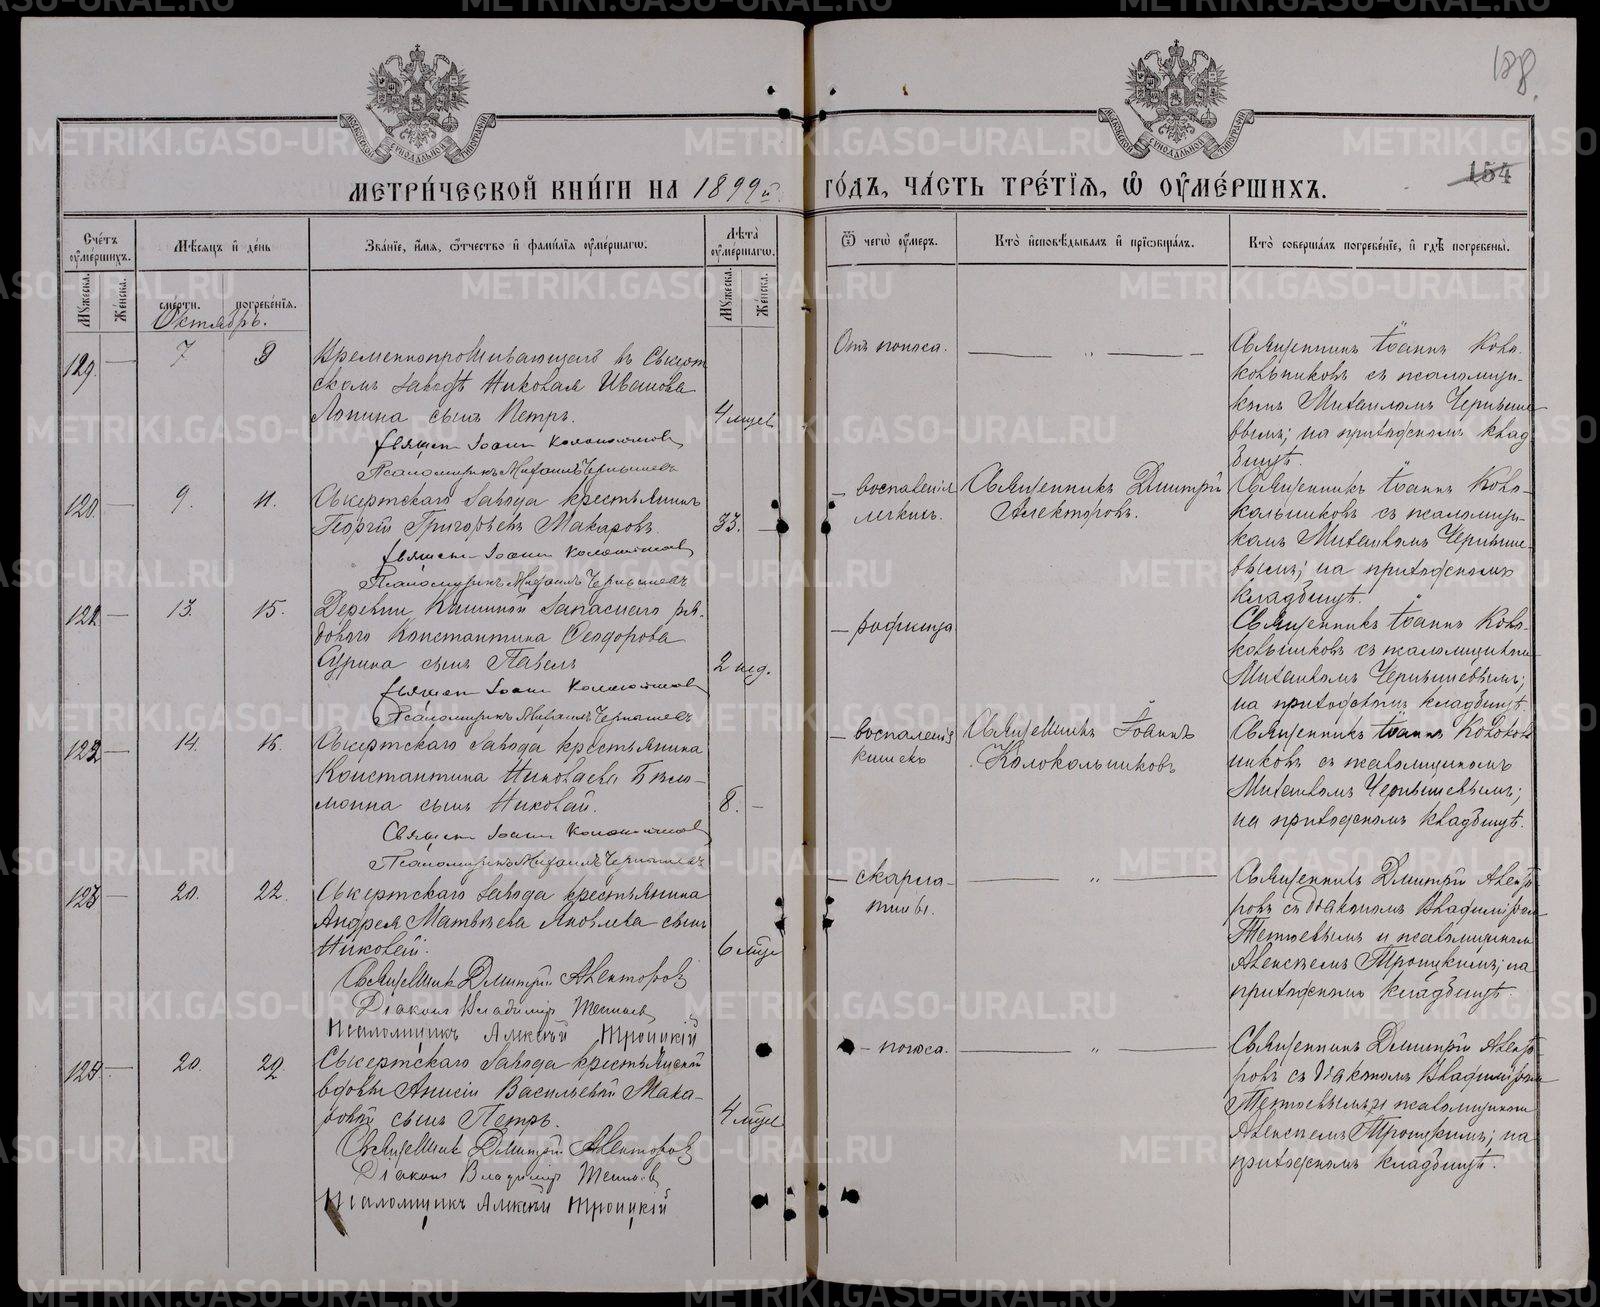 188.
154
МОСКОВСКОЙ СѴНОДАЛЬНОЙ ТИПОГРАФІИ
МОСКОВСКОЙ СѴНОДАЛЬНОЙ ТИПОГРАФІИ
МЕТРИ́ЧЕСКОЙ КНИ́ГИ НА 1899й ГО́ДЪ, ЧА́СТЬ ТРЕ́ТІѦ, Ѡ҆ ОУ҆МЕ́РШИХЪ.
Сче́тъ оу҆ме́ршихъ.
Мѣ́сяцъ и҆ де́нь
Зва́нїе, и҆́мя, ѻ҆́тчество и҆ фами́лїя оу҆ме́ршагѡ.
Лѣ́та оу҆ме́ршагѡ.
Ѿ чегѡ̀ оу҆́меръ.
Кто̀ и҆сповѣ́дывалъ и҆ прїѡбща́лъ.
Кто̀ соверша́лъ погребе́нїе, и҆ гдѣ̀ погребены̀.
Мꙋ́жеска. Же́нска. сме́рти. погребе́нїя. Мꙋ́жеска. Же́нска.
Октябрь.
129. — 7 9 Временнопроживающаго в Сысерт
скомъ заводѣ Николая Иванова
Лопина сынъ Петръ. 4 мцев
Священ Іоанн Колокольников
Псаломщикъ Михаилъ Чернышевъ
Отъ поноса. — „ —
Священникъ Іоаннъ Коло-
кольниковъ съ псаломщи-
комъ Михаиломъ Черныше-
вымъ; на приходскомъ клад
бищѣ.
120. — 9. 11. Сысертскаго завода крестьянинъ
Георгій Григорьевъ Макаровъ 33. —
Священ Іоанн Колокольников
Псаломщикъ Михаилъ Чернышевъ
— воспаленія
легкихъ.
Священникъ Дмитрій
Алекторовъ.
Священникъ Іоаннъ Коло-
кольниковъ съ псаломщи-
комъ Михаиломъ Черныше-
вымъ; на приходскомъ
кладбищѣ.
121. — 13. 15. Деревни Кашиной запаснаго ря-
доваго Константина Ѳеодорова
Сурина сынъ Павелъ 2 нед.
Священ Іоанн Колокольников
Псаломщикъ Михаилъ Чернышевъ
— родимца
Священникъ Іоаннъ Коло-
кольниковъ съ псаломщикомъ
Михаиломъ Чернышевымъ;
на приходскомъ кладбищѣ.
122 — 14. 16. Сысертскаго завода крестьянина
Константина Николаева
сынъ Николай. 8. —
Священ Іоанн Колокольников
Псаломщикъ Михаилъ Чернышевъ
— воспаленія
кишекъ
Священникъ Іоаннъ
Колокольниковъ
Священникъ Іоаннъ Колоколь
никовъ съ псаломщикомъ
Михаиломъ Чернышевымъ;
на приходскомъ кладбищѣ.
123 — 20. 22. Сысертскаго завода крестьянина
Андрея Матвѣева Яковлева сынъ
Николай. 6 мцев
Священник Дмитрій Алекторовъ
Діаконъ Владимір
Псаломщикъ Алексѣй Троицкій
— скарла-
тины.
— „ —
Священникъ Дмитрій Алекто-
ровъ съ діакономъ Владиміромъ
и псаломщикомъ
Алексѣемъ Троицкимъ; на
приходскомъ кладбищѣ.
124. — 20. 22. Сысертскаго завода крестьянской
вдовы Анисіи Васильевой Мака-
ровой сынъ Петръ. 4 мцев
Священник Дмитрій Алекторовъ
Діаконъ Владимір
Псаломщикъ Алексѣй Троицкій
— поноса.
— „ —
Священникъ Дмитрій Алекто-
ровъ съ діакономъ Владиміромъ
и псаломщикомъ
Алексѣемъ Троицкимъ; на
приходскомъ кладбищѣ.
METRIKI.GASO-URAL.RU